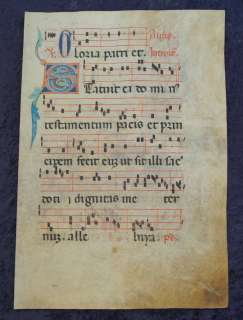 Gloria patri et.
Statuit ei domin
testamentum pacis et prin
cipem fecit eum ut sit illi sace
doti dignitas in e ter
num. alle luya. ps.